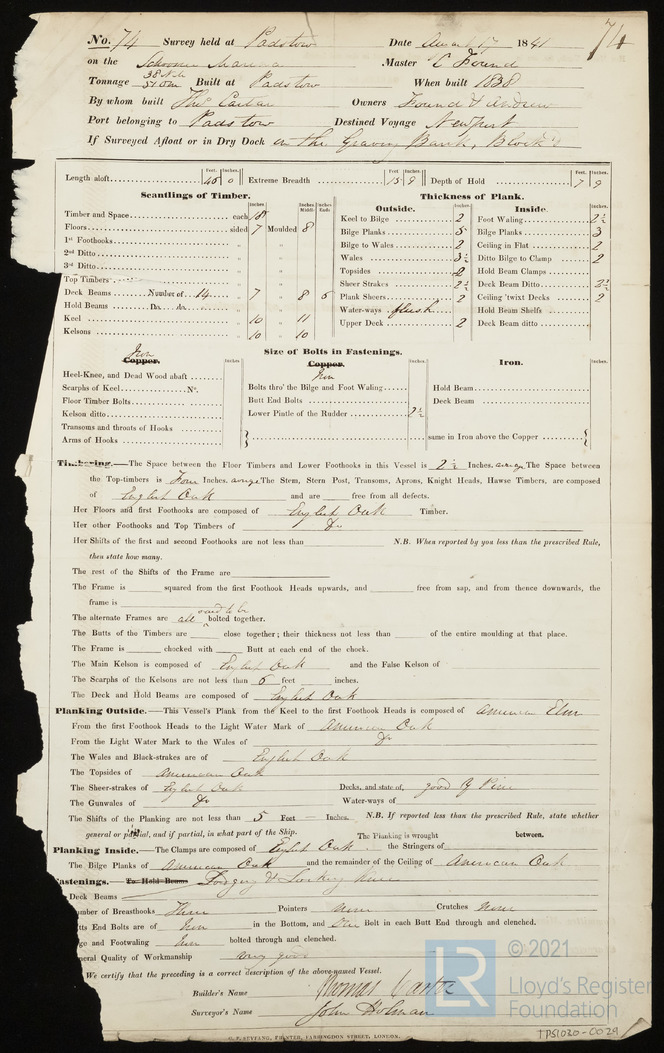 No. 74 Survey held at Padstow Date August 17 1841 74
on the Schooner Marina Master C Found
Tonnage 38 N.M. 51 O.M. Built at Padstow When built 1838
By whom built Thos. Owners Found &
Port belonging to Padstow Destined Voyage Newport
If Surveyed Afloat or in Dry Dock on the Graving Bank, Blocks
Length aloft Feet. 46 Inches. 0 Extreme Breadth Feet. 15 Inches. 9 Depth of Hold Feet. 7 Inches. 9
Scantlings of Timber. Thickness of Plank.
Inches. Inches. Middle Inches. Ends Outside. Inches. Inside. Inches.
Timber and Space each 18 Keel to Bilge 2 Foot Waling 2½
Floors sided 7 Moulded 8 Bilge Planks 3 Bilge Planks 3
1st Foothooks „ „ Bilge to Wales 2 Ceiling in Flat 2
2nd Ditto „ „ Wales 3½ Ditto Bilge to Clamp 2
3rd Ditto „ „ Topsides 2 Hold Beam Clamps
Top Timbers „ „ Sheer Strakes 2½ Deck Beam Ditto 2½
Deck Beams Number of 14 „ 7 „ 8 6 Plank Sheers 2 Ceiling 'twixt Decks 2
Hold Beams Do. do. „ „ Water-ways flush Hold Beam Shelfs
Keel „ 10 „ 11 Upper Deck 2 Deck Beam ditto
Kelsons „ 10 „ 10
Iron Copper. Inches. Size of Bolts in Fastenings. Copper. Iron Inches. Iron. Inches.
Heel-Knee, and Dead Wood abaft
Scarphs of Keel No. Bolts thro' the Bilge and Foot Waling Hold Beam
Floor Timber Bolts Butt End Bolts Deck Beam
Kelson ditto Lower Pintle of the Rudder 2½
Transoms and throats of Hooks
Arms of Hooks same in Iron above the Copper
Timbering.—The Space between the Floor Timbers and Lower Foothooks in this Vessel is 2½ Inches. average The Space between
the Top-timbers is Four Inches. average The Stem, Stern Post, Transoms, Aprons, Knight Heads, Hawse Timbers, are composed
of English Oak and are free from all defects.
Her Floors and first Foothooks are composed of English Oak Timber.
Her other Foothooks and Top Timbers of Do
Her Shifts of the first and second Foothooks are not less than N.B. When reported by you less than the prescribed Rule,
then state how many.
The rest of the Shifts of the Frame are
The Frame is squared from the first Foothook Heads upwards, and free from sap, and from thence downwards, the
frame is
The alternate Frames are all said to be bolted together.
The Butts of the Timbers are close together; their thickness not less than of the entire moulding at that place.
The Frame is chocked with Butt at each end of the chock.
The Main Kelson is composed of English Oak and the False Kelson of
The Scarphs of the Kelsons are not less than 6 feet inches.
The Deck and Hold Beams are composed of English Oak
Planking Outside.—This Vessel's Plank from the Keel to the first Foothook Heads is composed of American Elm
From the first Foothook Heads to the Light Water Mark of American Oak
From the Light Water Mark to the Wales of Do
The Wales and Black-strakes are of English Oak
The Topsides of American Oak
The Sheer-strakes of English Oak Decks, and state of, good Y Pine
The Gunwales of Do Water-ways of
The Shifts of the Planking are not less than 5 Feet — Inches. N.B. If reported less than the prescribed Rule, state whether
general or partial, and if partial, in what part of the Ship. The Planking is wrought between.
Planking Inside.—The Clamps are composed of English Oak the Stringers of
The Bilge Planks of American Oak and the remainder of the Ceiling of American Oak
astenings. To Hold Beams Lodging & Knees
Deck Beams
umber of Breasthooks Three Pointers None Crutches None
tts End Bolts are of Iron in the Bottom, and One Bolt in each Butt End through and clenched.
ge and Footwaling Iron bolted through and clenched.
neral Quality of Workmanship very good
We certify that the preceding is a correct description of the above-named Vessel.
Builder's Name Thomas
Surveyor's Name John Holman
PRINTER, FARRINGDON STREET, LONDON.
LR
© 2021
Lloyd's Register
Foundation
TPS1020-0029